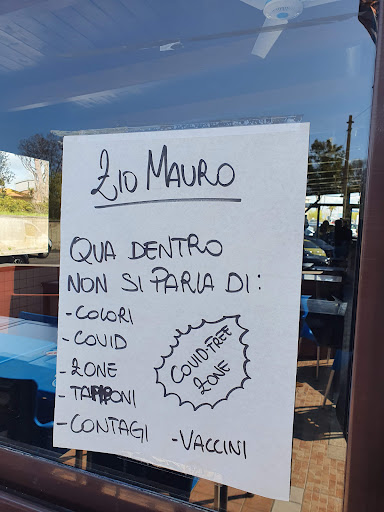 ZIO MAURO
QUA DENTRO
NON SI PARLA DI:
- COLORI
- COVID
- ZONE
- TAMPONI
- CONTAGI - VACCINI
COVID-FREE
ZONE